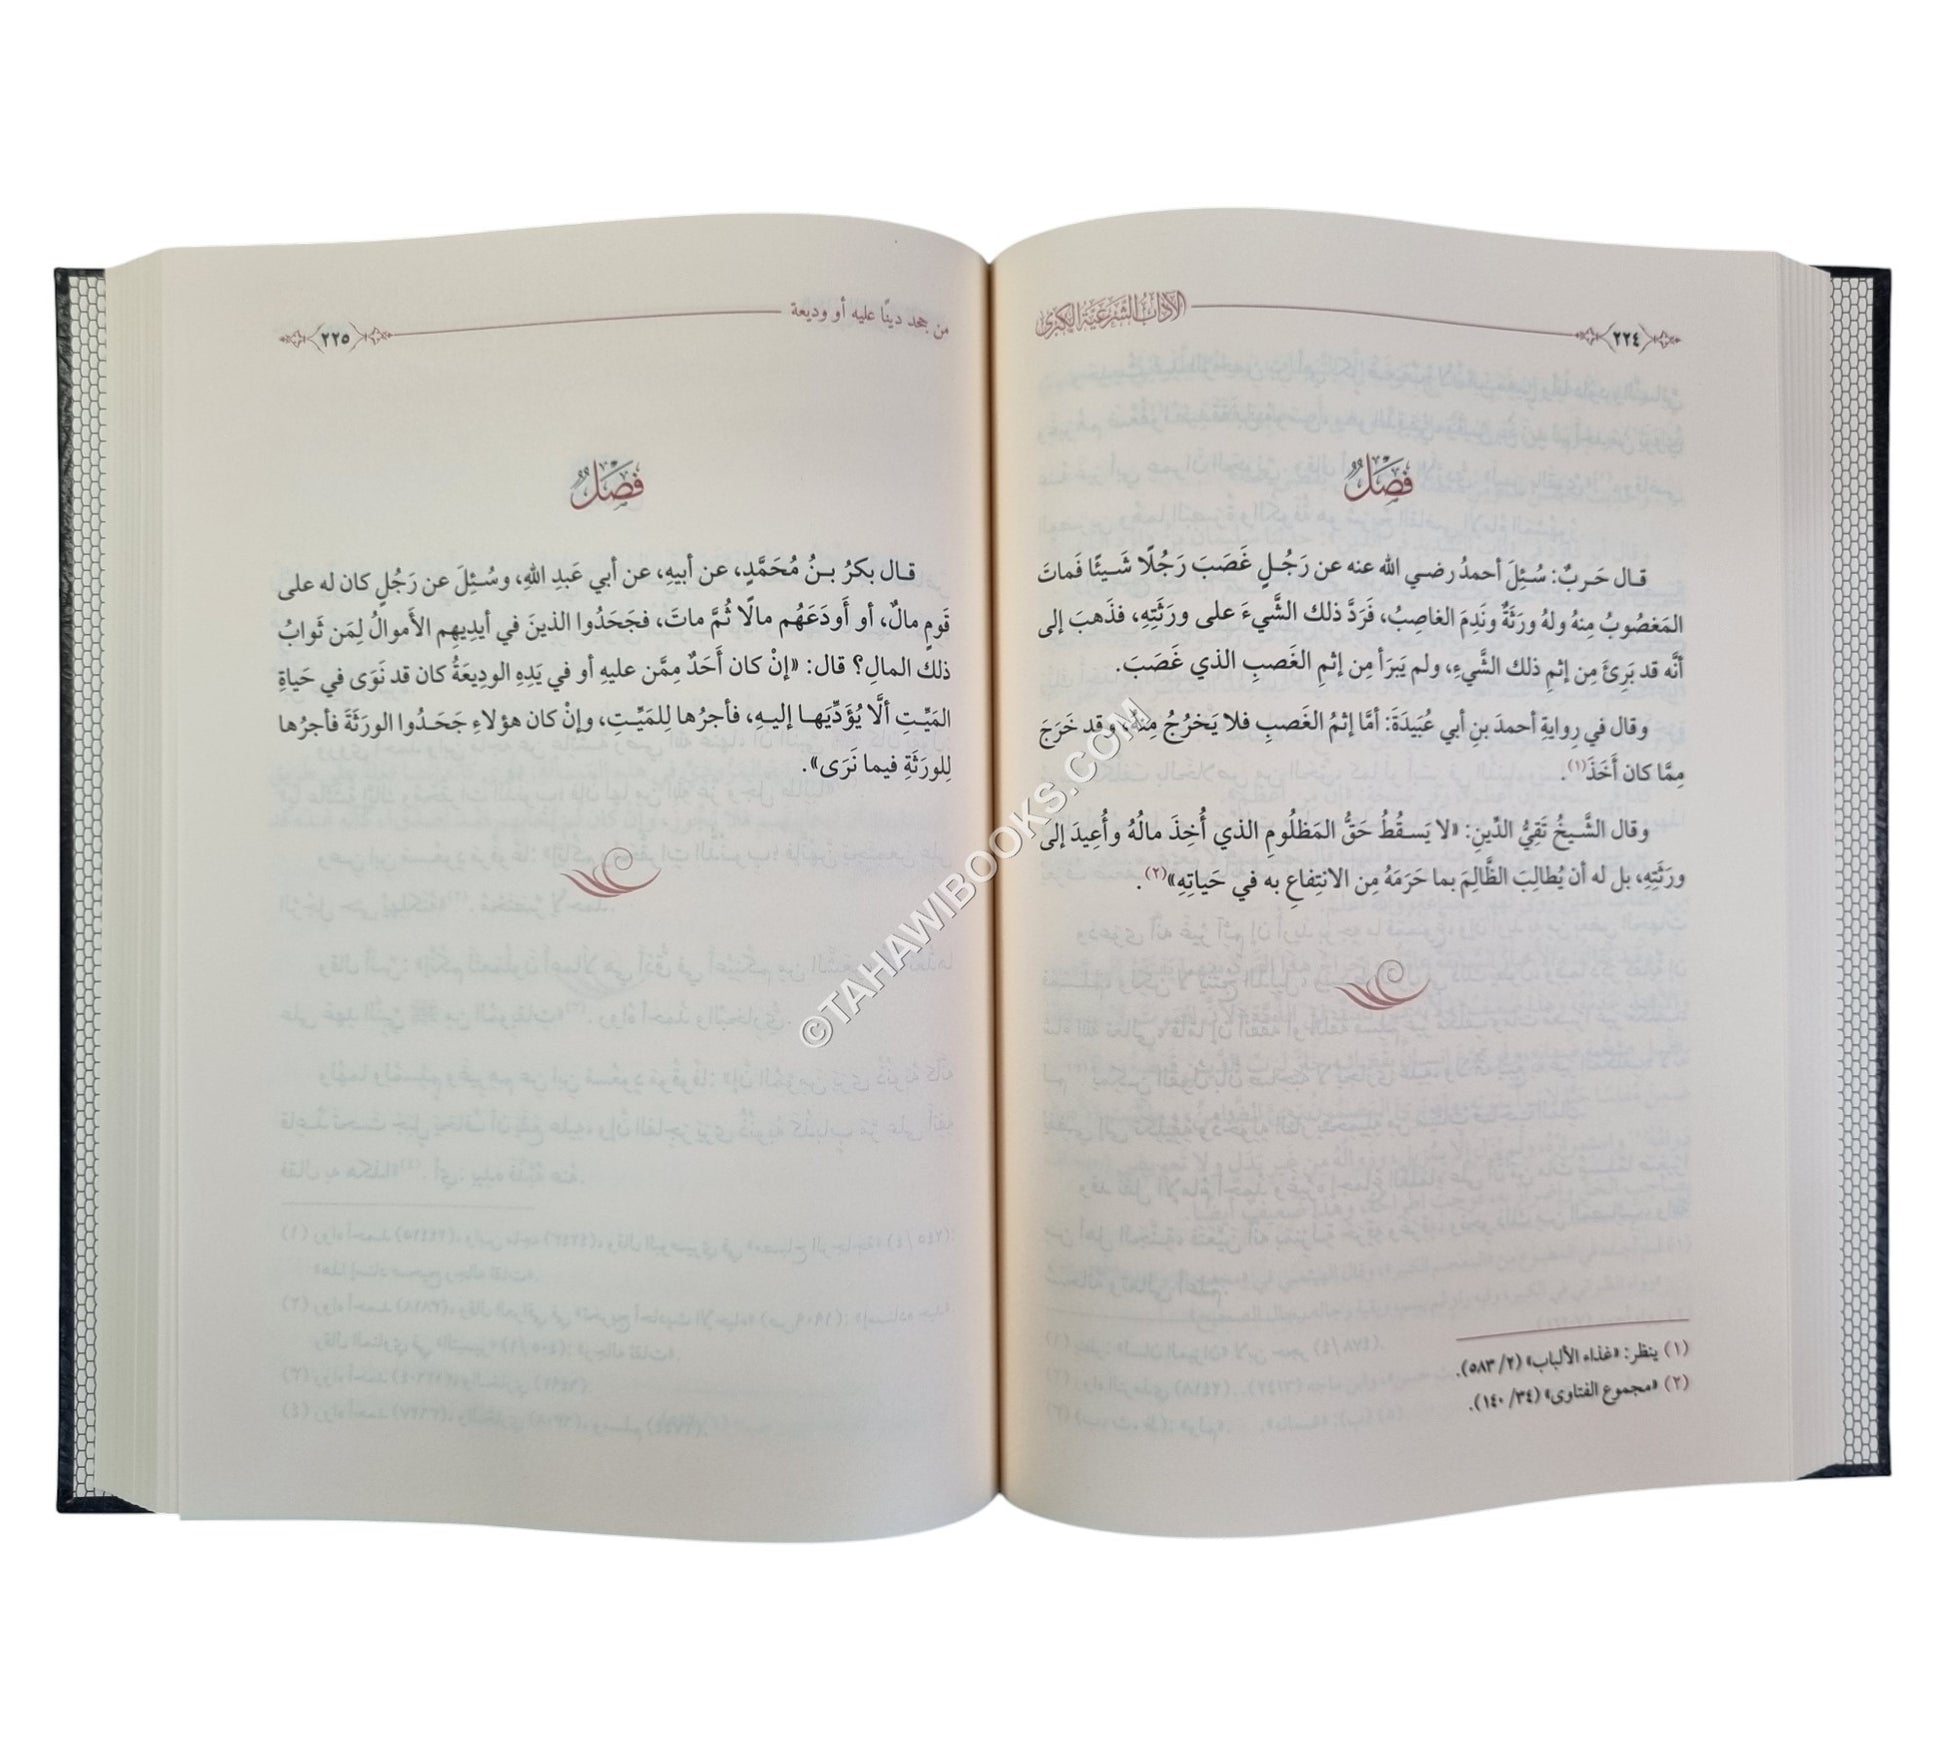 الآداب الشرعية الكبرى
٢٢٤
فَصْلٌ
قـال حَـربٌ: سُـئِلَ أحمدُ رضـي الله عنه عن رَجُـلٍ غَصَبَ رَجُلًا شَـيئًا فَماتَ
المَغصُوبُ مِنهُ ولهُ ورَثَةٌ ونَدِمَ الغاصِبُ، فَرَدَّ ذلك الشَّيءَ على ورَثَتِهِ، فذَهبَ إلى
أنَّه قد بَرِئَ مِن إثمِ ذلك الشَّيءِ، ولم يَبرَأ مِن إثمِ الغَصبِ الذي غَصَبَ.
وقال في رِوايةِ أحمدَ بنِ أبي عُبَيدَةَ: أمَّا إثمُ الغَصبِ فلا يَخرُجُ مِنهُ، وقد خَرَجَ
مِمَّا كان أَخَذَ(١).
وقال الشَّيخُ تَقِيُّ الدِّينِ: «لا يَسـقُطُ حَقُّ المَظلُومِ الذي أُخِذَ مالُهُ وأُعِيدَ إلى
ورَثَتِهِ، بل له أن يُطالِبَ الظَّالِمَ بما حَرَمَهُ مِن الانتِفاعِ به في حَياتِهِ»(٢).
(١) ينظر: «غذاء الألباب» (٢/ ٥٨٣).
(٢) «مجموع الفتاوى» (٣٤/ ١٤٠).
من جحد دينًا عليه أو وديعة
٢٢٥
فَصْلٌ
قـال بكرُ بـنُ مُحَمَّدٍ، عن أبيهِ، عن أبي عَبدِ اللهِ، وسُـئِلَ عن رَجُلٍ كان له على
قَومٍ مالٌ، أو أَودَعَهُم مالًا ثُمَّ ماتَ، فجَحَدُوا الذينَ في أيدِيهِم الأَموالُ لِمَن ثَوابُ
ذلك المالِ؟ قال: «إنْ كان أَحَدٌ مِمَّن عليهِ أو في يَدِهِ الودِيعَةُ كان قد نَوَى في حَياةِ
المَيِّـتِ ألَّا يُؤَدِّيَهـا إليـهِ، فأجرُها لِلمَيِّـتِ، وإنْ كان هؤلاءِ جَحَدُوا الورَثَةَ فأجرُها
لِلورَثَةِ فيما نَرَى».
©TAHAWIBOOKS.COM